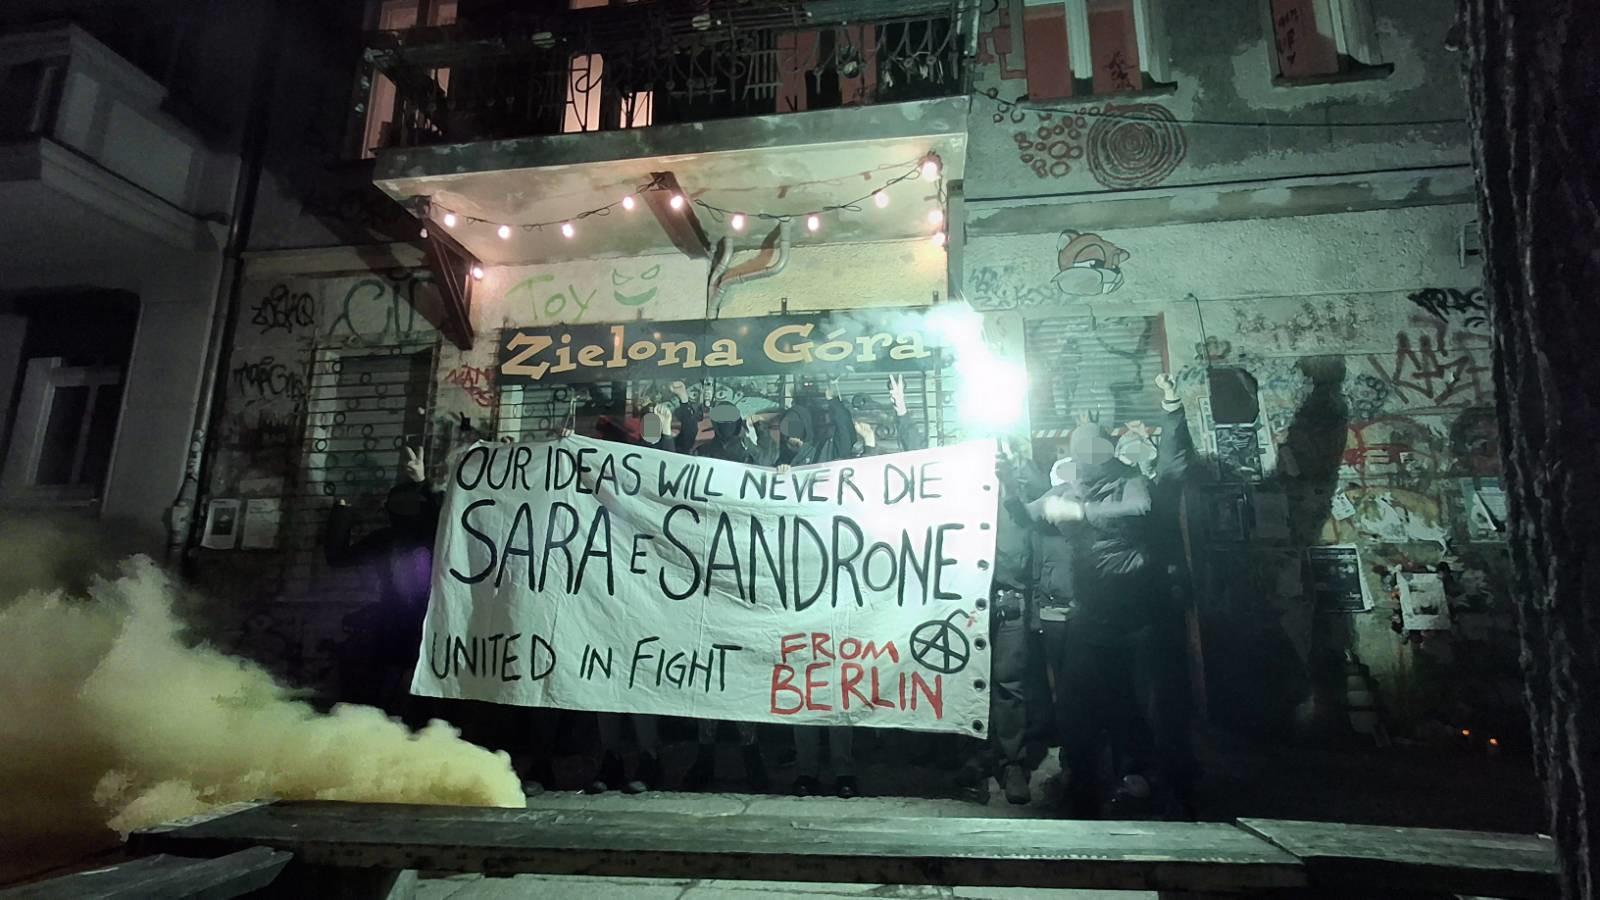 Toy
Zielona Góra
OUR IDEAS WILL NEVER DIE
SARA E SANDRONE
UNITED IN FIGHT
FROM
BERLIN